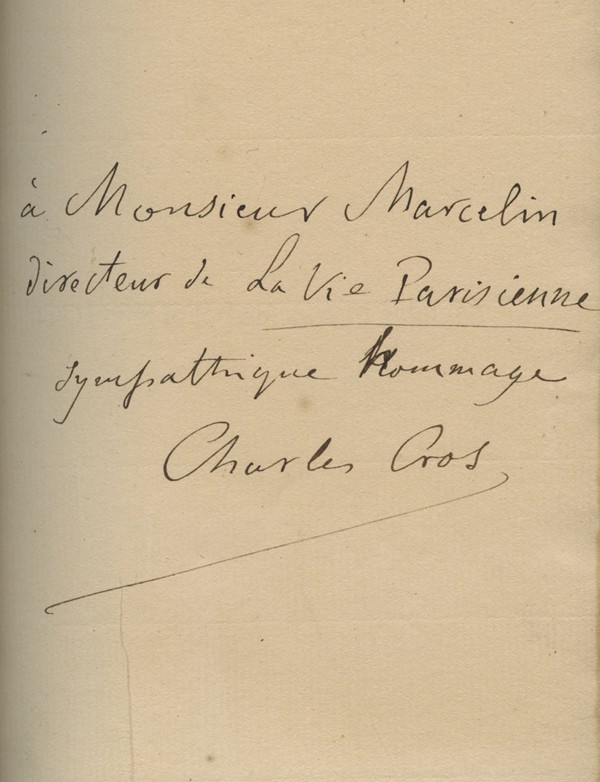 à Monsieur Marcelin
directeur de La Vie Parisienne
sympathique hommage
Charles Cros